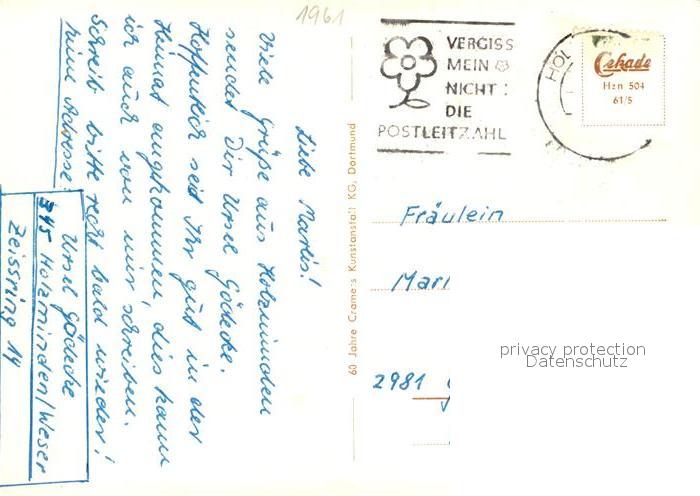 1961
VERGISS
MEIN
NICHT:
DIE
POSTLEITZAHL
HOL
Cekade
Hzn 504
61/5
Liebe
Viele Grüße aus Holzminden
sendet Dir Ursel Gödecke.
Hoffentlich seid Ihr gut in der
Heimat angekommen, dies kann
ich auch von mir schreiben.
Schreib bitte recht bald wieder!
Meine Adresse:
Ursel Gödecke
345 Holzminden/Weser
Zeissring 14
60 Jahre Cramers Kunstanstalt KG, Dortmund
Fräulein
Mari
2981
privacy protection
Datenschutz